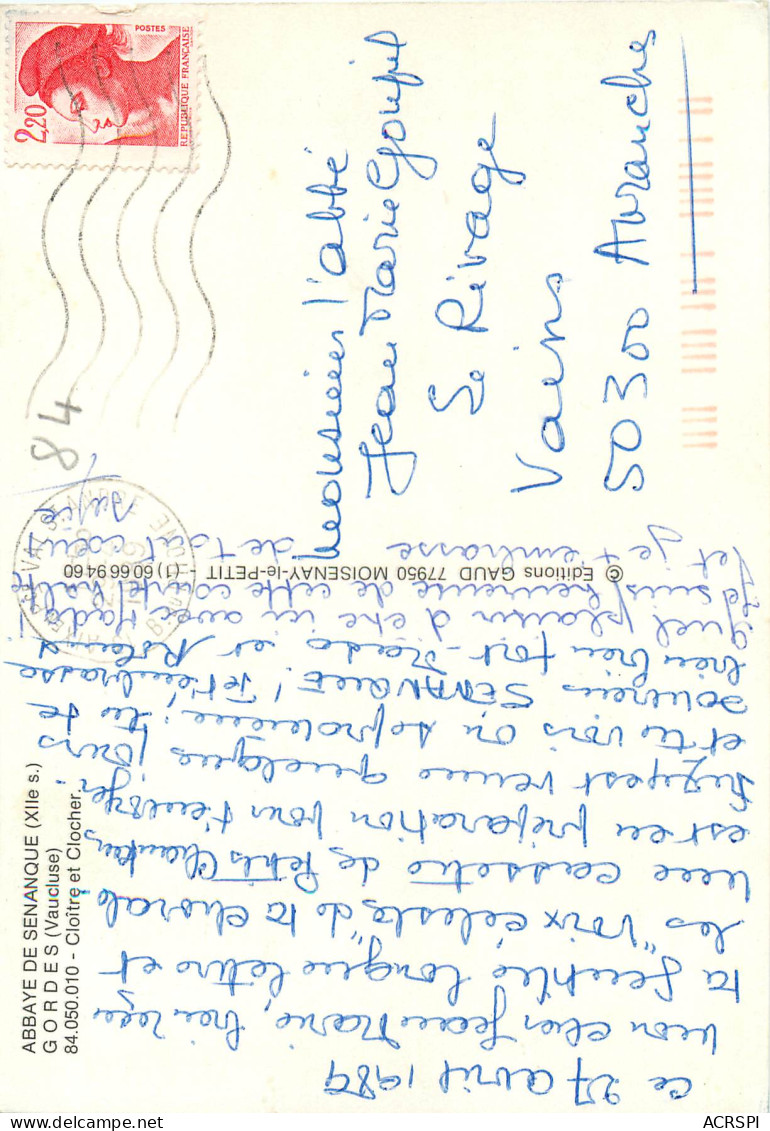 ABBAYE DE SENANQUE (XIIe s.)
GORDES (Vaucluse)
84.050.010 - Cloître et Clocher.
ce 27 avril 1989
Mon cher Jean Marie, bien reçu
ta gentille longue lettre et
les "Voix célestes" de ta chorale
une cassette de Petits Chanteurs
est en préparation pour t'envoyer.
Suzy est venue quelques jours
et tu vois on se promène! Tu te
souviens SENANQUE! Je t'embrasse
bien bien fort - Nado et Roland
Quel plaisir d'être ici avec Nado
Je suis heureuse de cette courte halte
et je t'embrasse de tout cœur
Suzie
© Editions GAUD 77950 MOISENAY-le-PETIT - (1) 60.66.94.60
2,20
POSTES
REPUBLIQUE FRANÇAISE
84
Monsieur l'abbé
Jean Marie Goupil
Le Rivage
Vains
50300 Avranches
ACRSPI